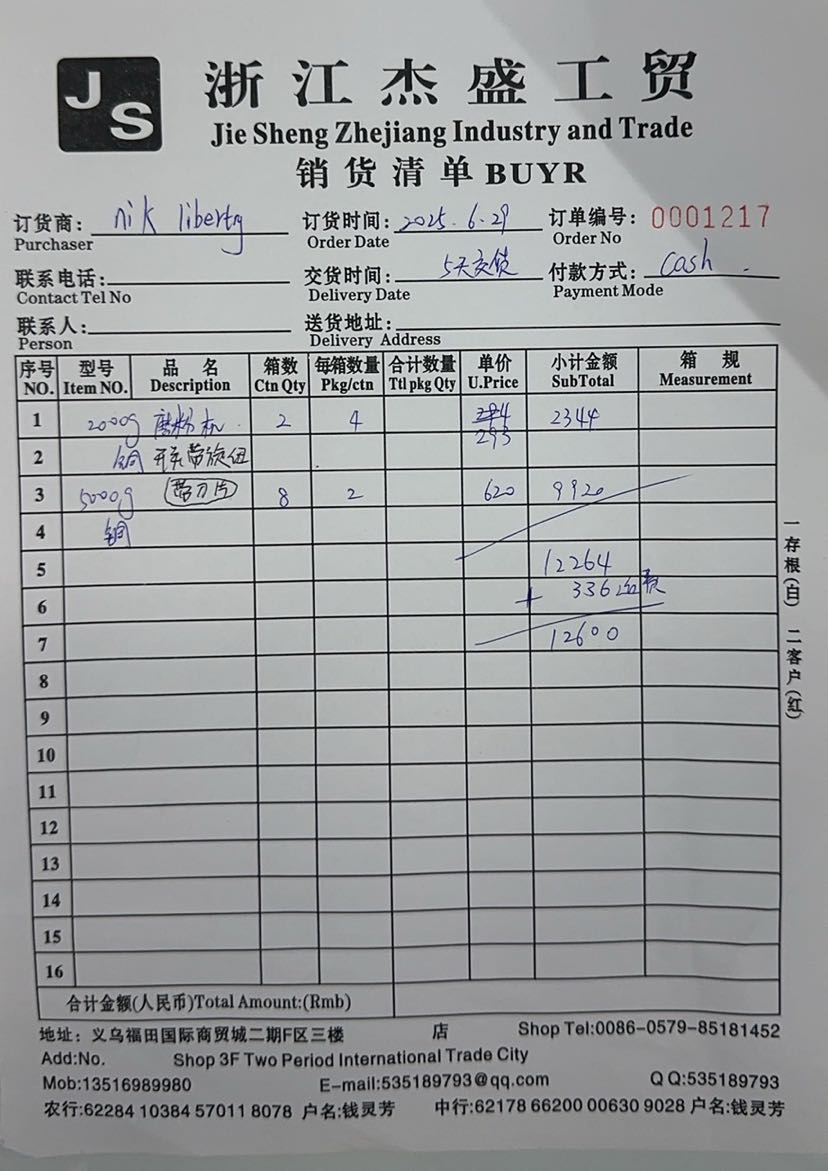 JS
浙江杰盛工贸
Jie Sheng Zhejiang Industry and Trade
销货清单 BUYR
订货商: nik liberty 订货时间: 2025.6.29 订单编号: 0001217
Purchaser Order Date Order No
联系电话: 交货时间: 5天交货 付款方式: cash.
Contact Tel No Delivery Date Payment Mode
联系人: 送货地址:
Person Delivery Address
序号 型号 品名 箱数 每箱数量 合计数量 单价 小计金额 箱规
NO. Item NO. Description Ctn Qty Pkg/ctn Ttl pkg Qty U.Price SubTotal Measurement
1 2000g 磨粉机 2 4 293 2344
2 铜 开关带旋钮
3 5000g (带刀片) 8 2 620 9920
4 铜
5 12264
6 + 336 费
7 12600
8
9
10
11
12
13
14
15
16
合计金额(人民币)Total Amount:(Rmb)
一存根(白) 二客户(红)
地址: 义乌福田国际商贸城二期F区三楼 店 Shop Tel:0086-0579-85181452
Add:No. Shop 3F Two Period International Trade City
Mob:13516989980 E-mail:535189793@qq.com QQ:535189793
农行:62284 10384 57011 8078 户名:钱灵芳 中行:62178 66200 00630 9028 户名:钱灵芳